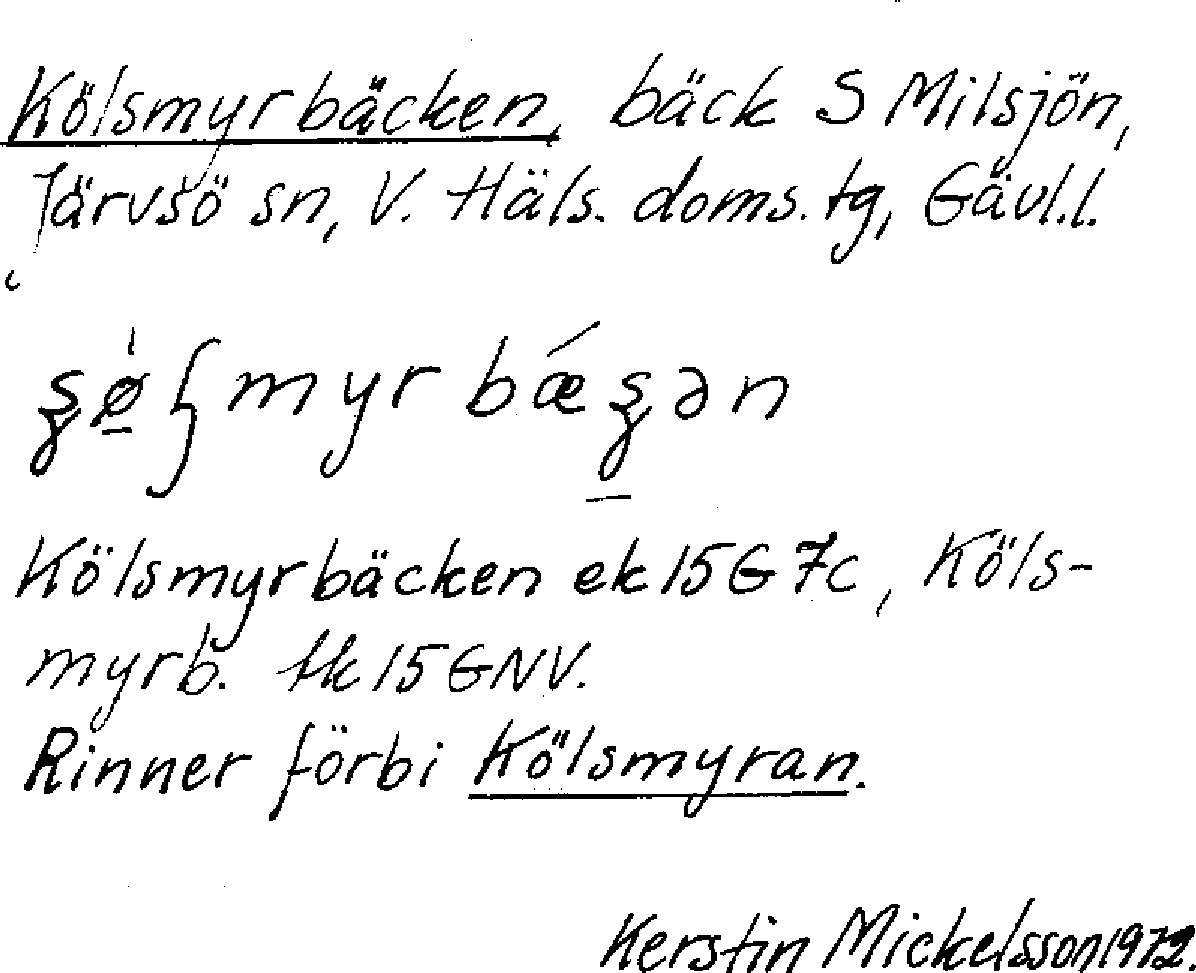 Kölsmyrbäcken, bäck S Milsjön,
Järvsö sn, V. Häls. doms. tg, Gävl.l.
Kölsmyrbäcken ek 15G 7c, Köls-
myrb. tk 15GNV.
Rinner förbi Kölsmyran.
Kerstin Mickelsson 1972.